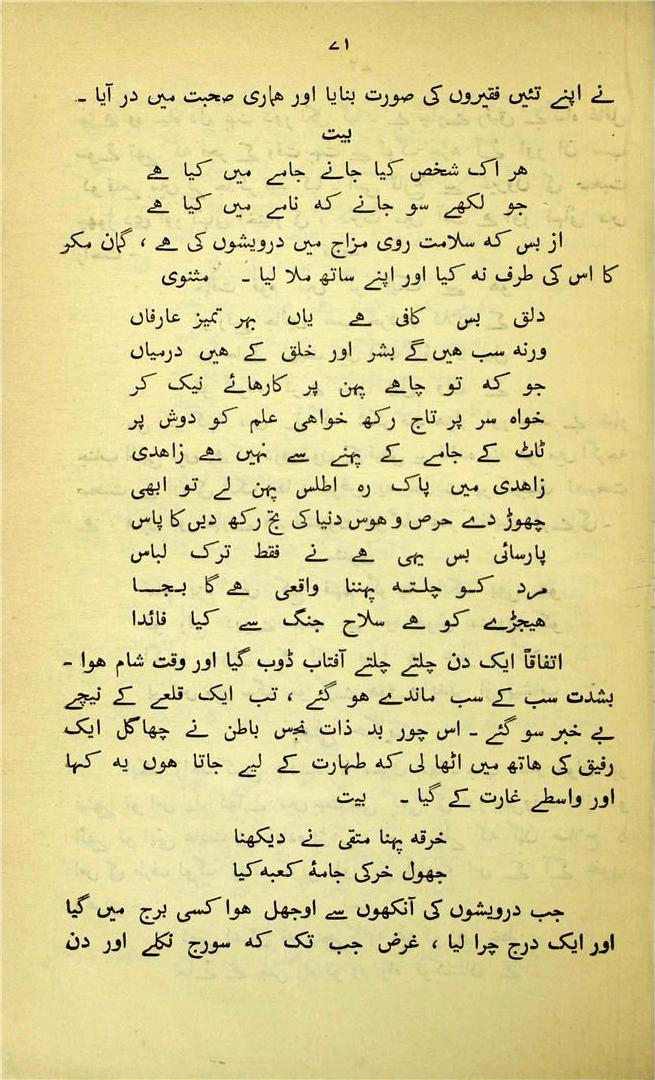 ۷۱
نے اپنے تئیں فقیروں کی صورت بنایا اور ھماری صحبت میں در آیا ۔
بیت
ھر اک شخص کیا جانے جامے میں کیا ھے
جو لکھے سو جانے کہ نامے میں کیا ھے
از بس کہ سلامت روی مزاج میں درویشوں کی ھے ، گمان مکر
کا اس کی طرف نہ کیا اور اپنے ساتھ ملا لیا ۔ مثنوی
دلق بس کافی ھے یاں بہر تمیز عارفاں
ورنہ سب ھیں گے بشر اور خلق کے ھیں درمیاں
جو کہ تو چاھے پہن پر کارھائے نیک کر
خواہ سر پر تاج رکھ خواھی علم کو دوش پر
ٹاٹ کے جامے کے پہنے سے نہیں ھے زاھدی
زاھدی میں پاک رہ اطلس پہن لے تو ابھی
چھوڑ دے حرص و ھوس دنیا کی بچ رکھ دیں کا پاس
پارسائی بس یہی ھے نے فقط ترک لباس
مرد کو چلتہ پہننا واقعی ھے گا بجا
ھیجڑے کو ھے سلاح جنگ سے کیا فائدا
اتفاقاً ایک دن چلتے چلتے آفتاب ڈوب گیا اور وقت شام ھوا ۔
بشدت سب کے سب ماندے ھو گئے ، تب ایک قلعے کے نیچے
بے خبر سو گئے ۔ اس چور بد ذات نجس باطن نے چھاگل ایک
رفیق کی ھاتھ میں اٹھا لی کہ طہارت کے لیے جاتا ھوں یہ کہا
اور واسطے غارت کے گیا ۔ بیت
خرقہ پہنا متقی نے دیکھنا
جھول خرکی جامۂ کعبہ کیا
جب درویشوں کی آنکھوں سے اوجھل ھوا کسی برج میں گیا
اور ایک درج چرا لیا ، غرض جب تک کہ سورج نکلے اور دن